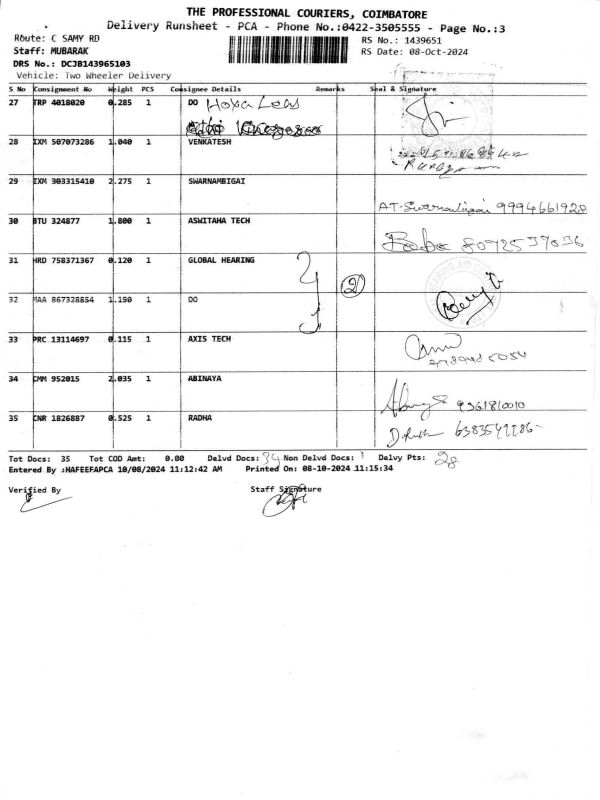 THE PROFESSIONAL COURIERS, COIMBATORE
Delivery Runsheet - PCA - Phone No.:0422-3505555 - Page No.:3
Route: C SAMY RD RS No.: 1439651
Staff: MUBARAK RS Date: 08-Oct-2024
DRS No.: DCJB143965103
Vehicle: Two Wheeler Delivery
S No Consignment No Weight PCS Consignee Details Remarks Seal & Signature
27 TRP 4018020 0.285 1 DO
28 IXM 507073286 1.040 1 VENKATESH
29 IXM 303315410 2.275 1 SWARNAMBIGAI
9994661928
30 BTU 324877 1.800 1 ASWITAHA TECH
8072537036
31 HRD 758371367 0.120 1 GLOBAL HEARING
2
32 MAA 867328854 1.190 1 DO
33 PRC 13114697 0.115 1 AXIS TECH
34 CMM 952015 2.035 1 ABINAYA
9361810010
35 CNR 1826887 0.525 1 RADHA
Tot Docs: 35 Tot COD Amt: 0.00 Delvd Docs: 34 Non Delvd Docs: 1 Delvy Pts: 28
Entered By :HAFEEFAPCA 10/08/2024 11:12:42 AM Printed On: 08-10-2024 11:15:34
Verified By Staff Signature